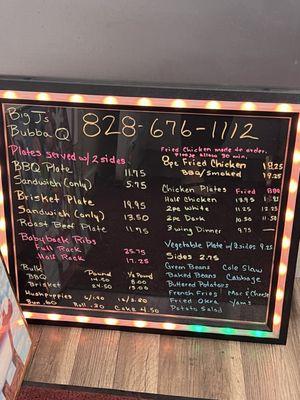 Big J's
Bubba Q
828-676-1112
Plates served w/2 sides
BBQ Plate 11.75
Sandwich (only) 5.75
Brisket Plate 19.95
Sandwich (only) 13.50
Roast Beef Plate 11.95
Babyback Ribs
Full Rack 25.75
Half Rack 17.25
Bulk Pound 1/2 Pound
BBQ 14.50 8.00
Brisket 24.50 13.00
Hushpuppies 6/1.40 12/2.80
Bun .60 Roll .30 Cake 4.50
Fried Chicken made to order.
Please allow 30 min.
8pc Fried Chicken 19.25
BBQ/smoked 19.25
Chicken Plates Fried BBQ
Half Chicken
2pc White 11.25 12.25
2pc Dark 10.50 11.50
3 wing Dinner 9.75
Vegetable Plate w/3 sides 9.25
Sides 2.75
Green Beans Cole Slaw
Baked Beans Cabbage
Buttered Potatoes
French Fries Mac & Cheese
Fried Okra Yams
Potato Salad